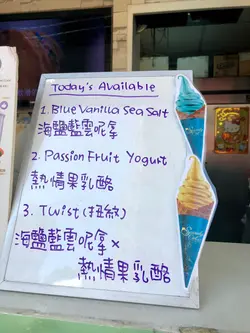 Today's Available
1. Blue Vanilla Sea Salt
海鹽藍雲呢拿
2. Passion Fruit Yogurt
熱情果乳酪
3. Twist (扭紋)
海鹽藍雲呢拿 ×
熱情果乳酪